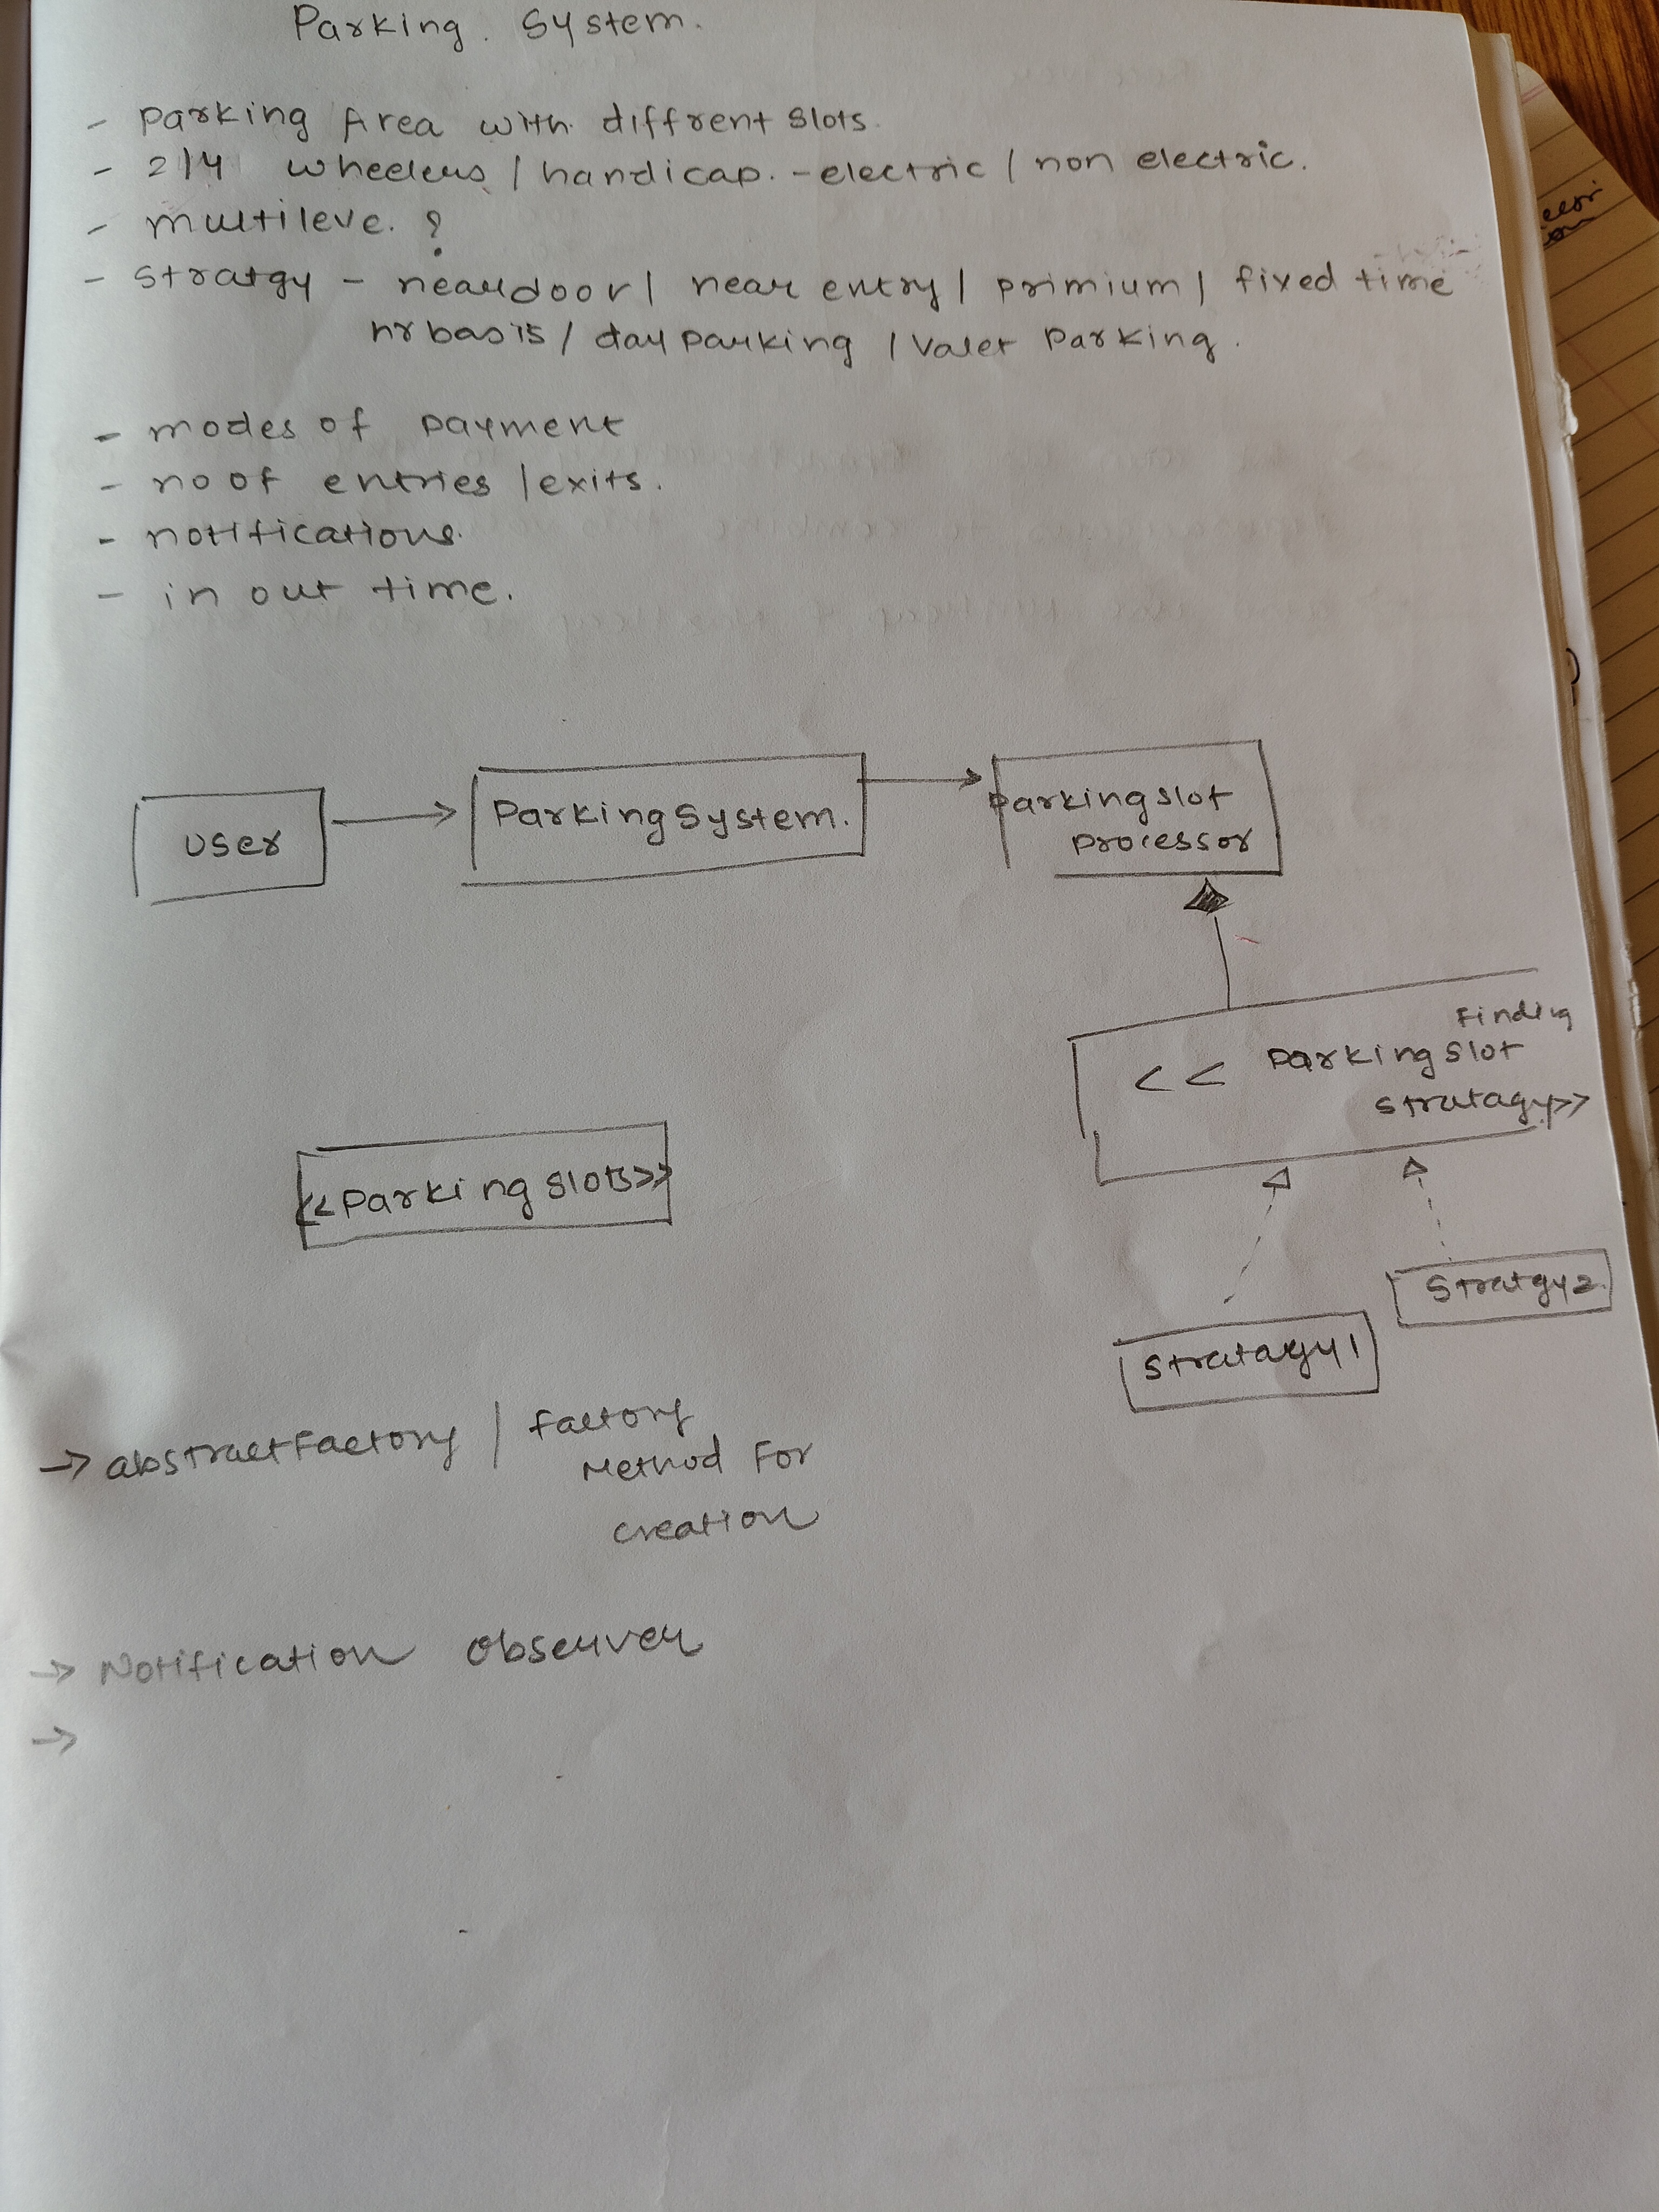 Parking. System.
- Parking Area with diffrent Slots.
- 2/4 wheelers / handicap. - electric / non electric.
- multileve. ?
- stratgy - neardoor / near entry / primium / fixed time
hr basis / day parking / Valet Parking.
- modes of payment
- no of entries / exits.
- notifications.
- in out time.
User
ParkingSystem.
parkingslot
processor
Finding
<< Parkingslot
stratagy>>
<<Parkingslots>>
Stratgy2.
Stratagy1
→ abstractFactory / factory
Method For
creation
→ Notification Observer
→